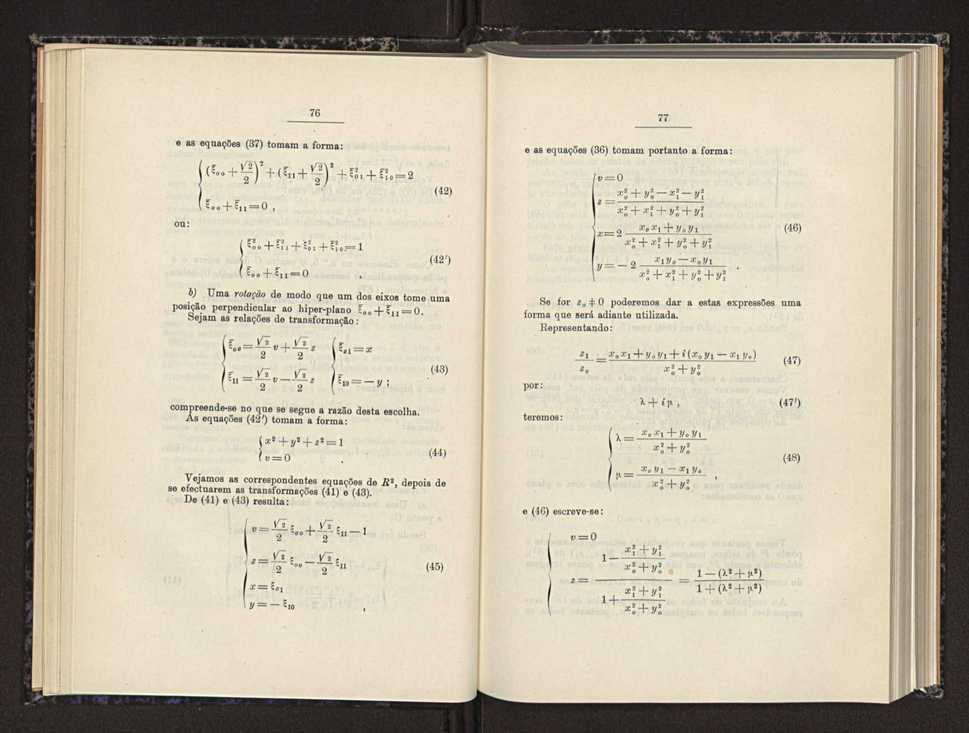 76
e as equações (37) tomam a forma:
(ξ̄₀₀ + √2/2)² + (ξ̄₁₁ + √2/2)² + ξ̄²₀₁ + ξ̄²₁₀ = 2
(42)
ξ̄₀₀ + ξ̄₁₁ = 0 ,
ou:
ξ̄²₀₀ + ξ̄²₁₁ + ξ̄²₀₁ + ξ̄²₁₀ = 1
(42')
ξ̄₀₀ + ξ̄₁₁ = 0 .
b) Uma rotação de modo que um dos eixos tome uma
posição perpendicular ao hiper-plano ξ̄₀₀ + ξ̄₁₁ = 0.
Sejam as relações de transformação:
ξ̄₀₀ = √2/2 v + √2/2 z   ξ̄₀₁ = x
(43)
ξ̄₁₁ = √2/2 v − √2/2 z   ξ̄₁₀ = − y ;
compreende-se no que se segue a razão desta escolha.
As equações (42') tomam a forma:
x² + y² + z² = 1
(44)
v = 0 .
Vejamos as correspondentes equações de R³, depois de
se efectuarem as transformações (41) e (43).
De (41) e (43) resulta:
v = √2/2 ξ₀₀ + √2/2 ξ₁₁ − 1
z = √2/2 ξ₀₀ − √2/2 ξ₁₁
(45)
x = ξ₀₁
y = − ξ₁₀ ,
77
e as equações (36) tomam portanto a forma:
v = 0
z = (x₀² + y₀² − x₁² − y₁²)/(x₀² + x₁² + y₀² + y₁²)
x = 2 (x₀x₁ + y₀y₁)/(x₀² + x₁² + y₀² + y₁²)
(46)
y = − 2 (x₁y₀ − x₀y₁)/(x₀² + x₁² + y₀² + y₁²) .
Se for z₀ ≠ 0 poderemos dar a estas expressões uma
forma que será adiante utilizada.
Representando:
z₁/z₀ = (x₀x₁ + y₀y₁ + i (x₀y₁ − x₁y₀))/(x₀² + y₀²)
(47)
por:
λ + iμ , (47')
teremos:
λ = (x₀x₁ + y₀y₁)/(x₀² + y₀²)
(48)
μ = (x₀y₁ − x₁y₀)/(x₀² + y₀²) ,
e (46) escreve-se:
v = 0
z = (1 − (x₁² + y₁²)/(x₀² + y₀²))/(1 + (x₁² + y₁²)/(x₀² + y₀²)) = (1 − (λ² + μ²))/(1 + (λ² + μ²))